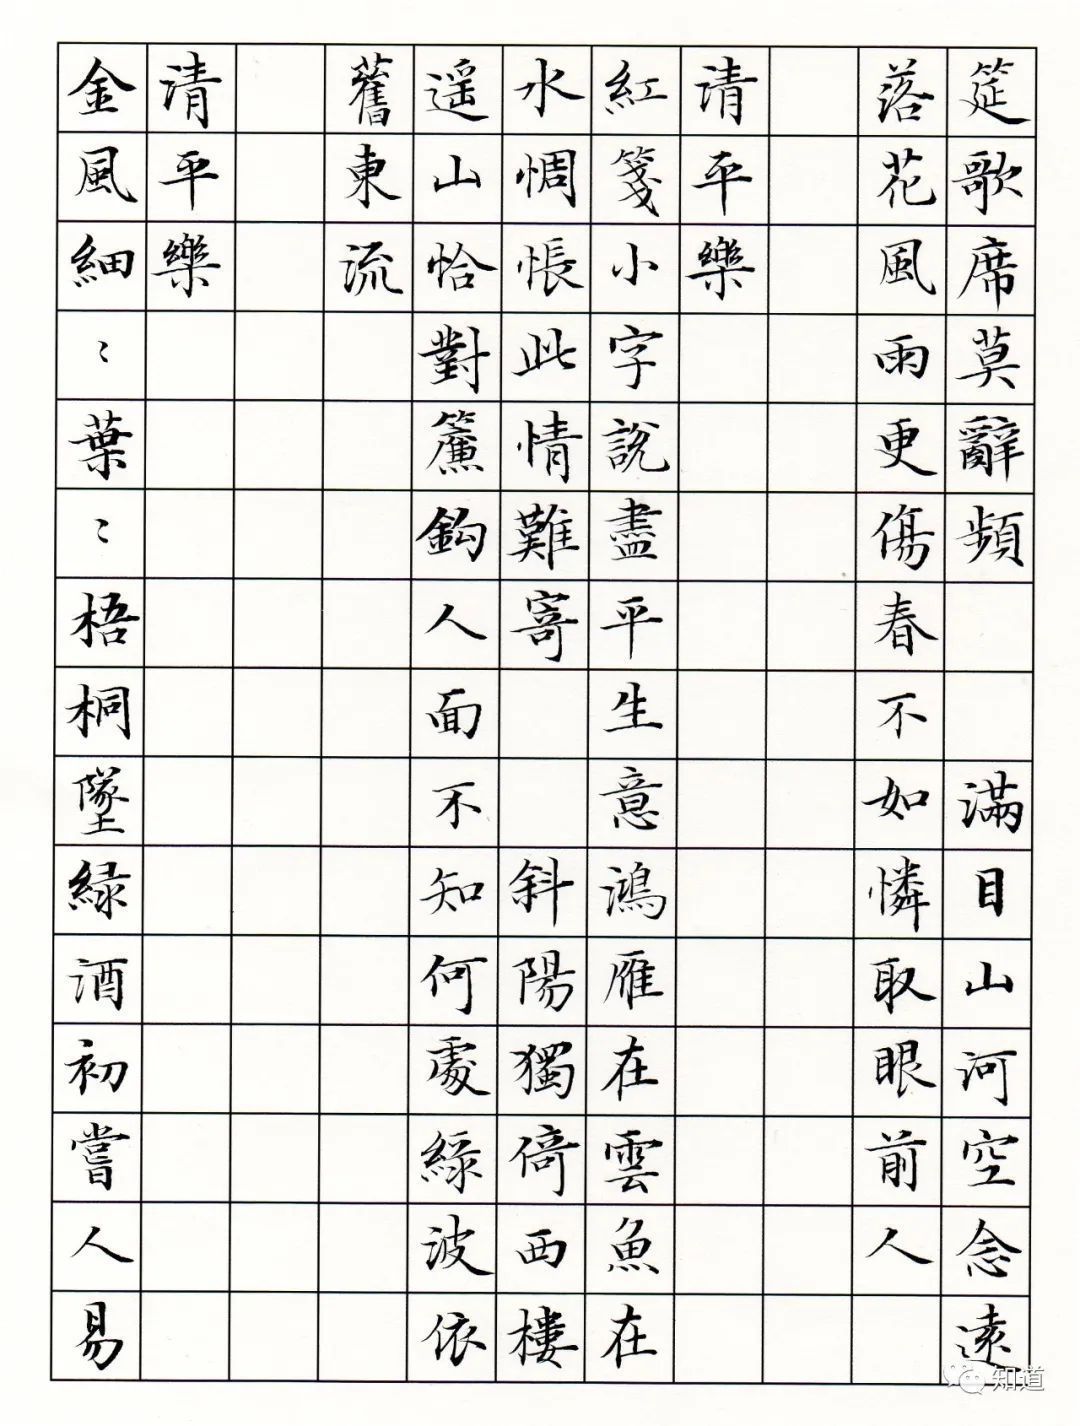 筵歌席莫辭頻 滿目山河空念遠
落花風雨更傷春不如憐取眼前人
清平樂
紅箋小字說盡平生意鴻雁在雲魚在
水惆悵此情難寄 斜陽獨倚西樓
遥山恰對簾鈎人面不知何處緑波依
舊東流
清平樂
金風細〻葉〻梧桐墜緑酒初嘗人易
知道